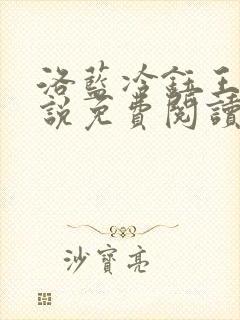 洛藍冷鈺王
說免費閱讀
沙寶亮